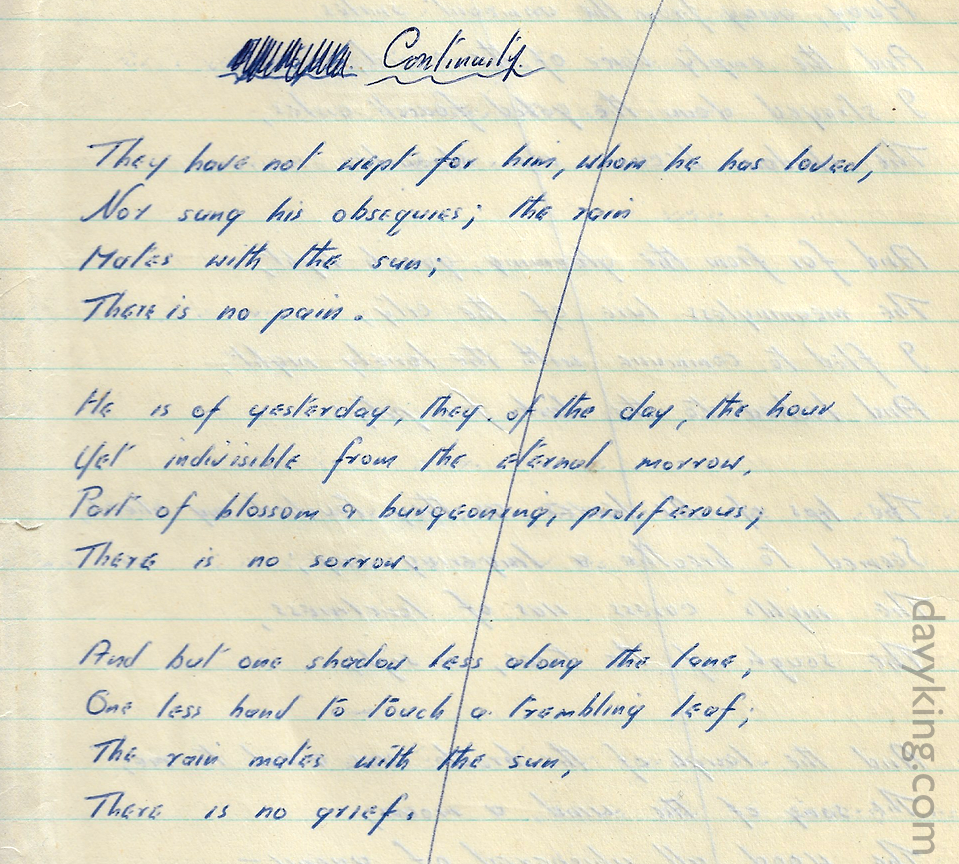 Continuity.
They have not wept for him, whom he has loved,
Nor sung his obsequies; the rain
Mates with the sun;
There is no pain.
He is of yesterday, they of the day, the hour
Yet indivisible from the eternal morrow,
Part of blossom & burgeoning, proliferous;
There is no sorrow.
And but one shadow less along the lane,
One less hand to touch a trembling leaf;
The rain mates with the sun,
There is no grief.
davyking.com